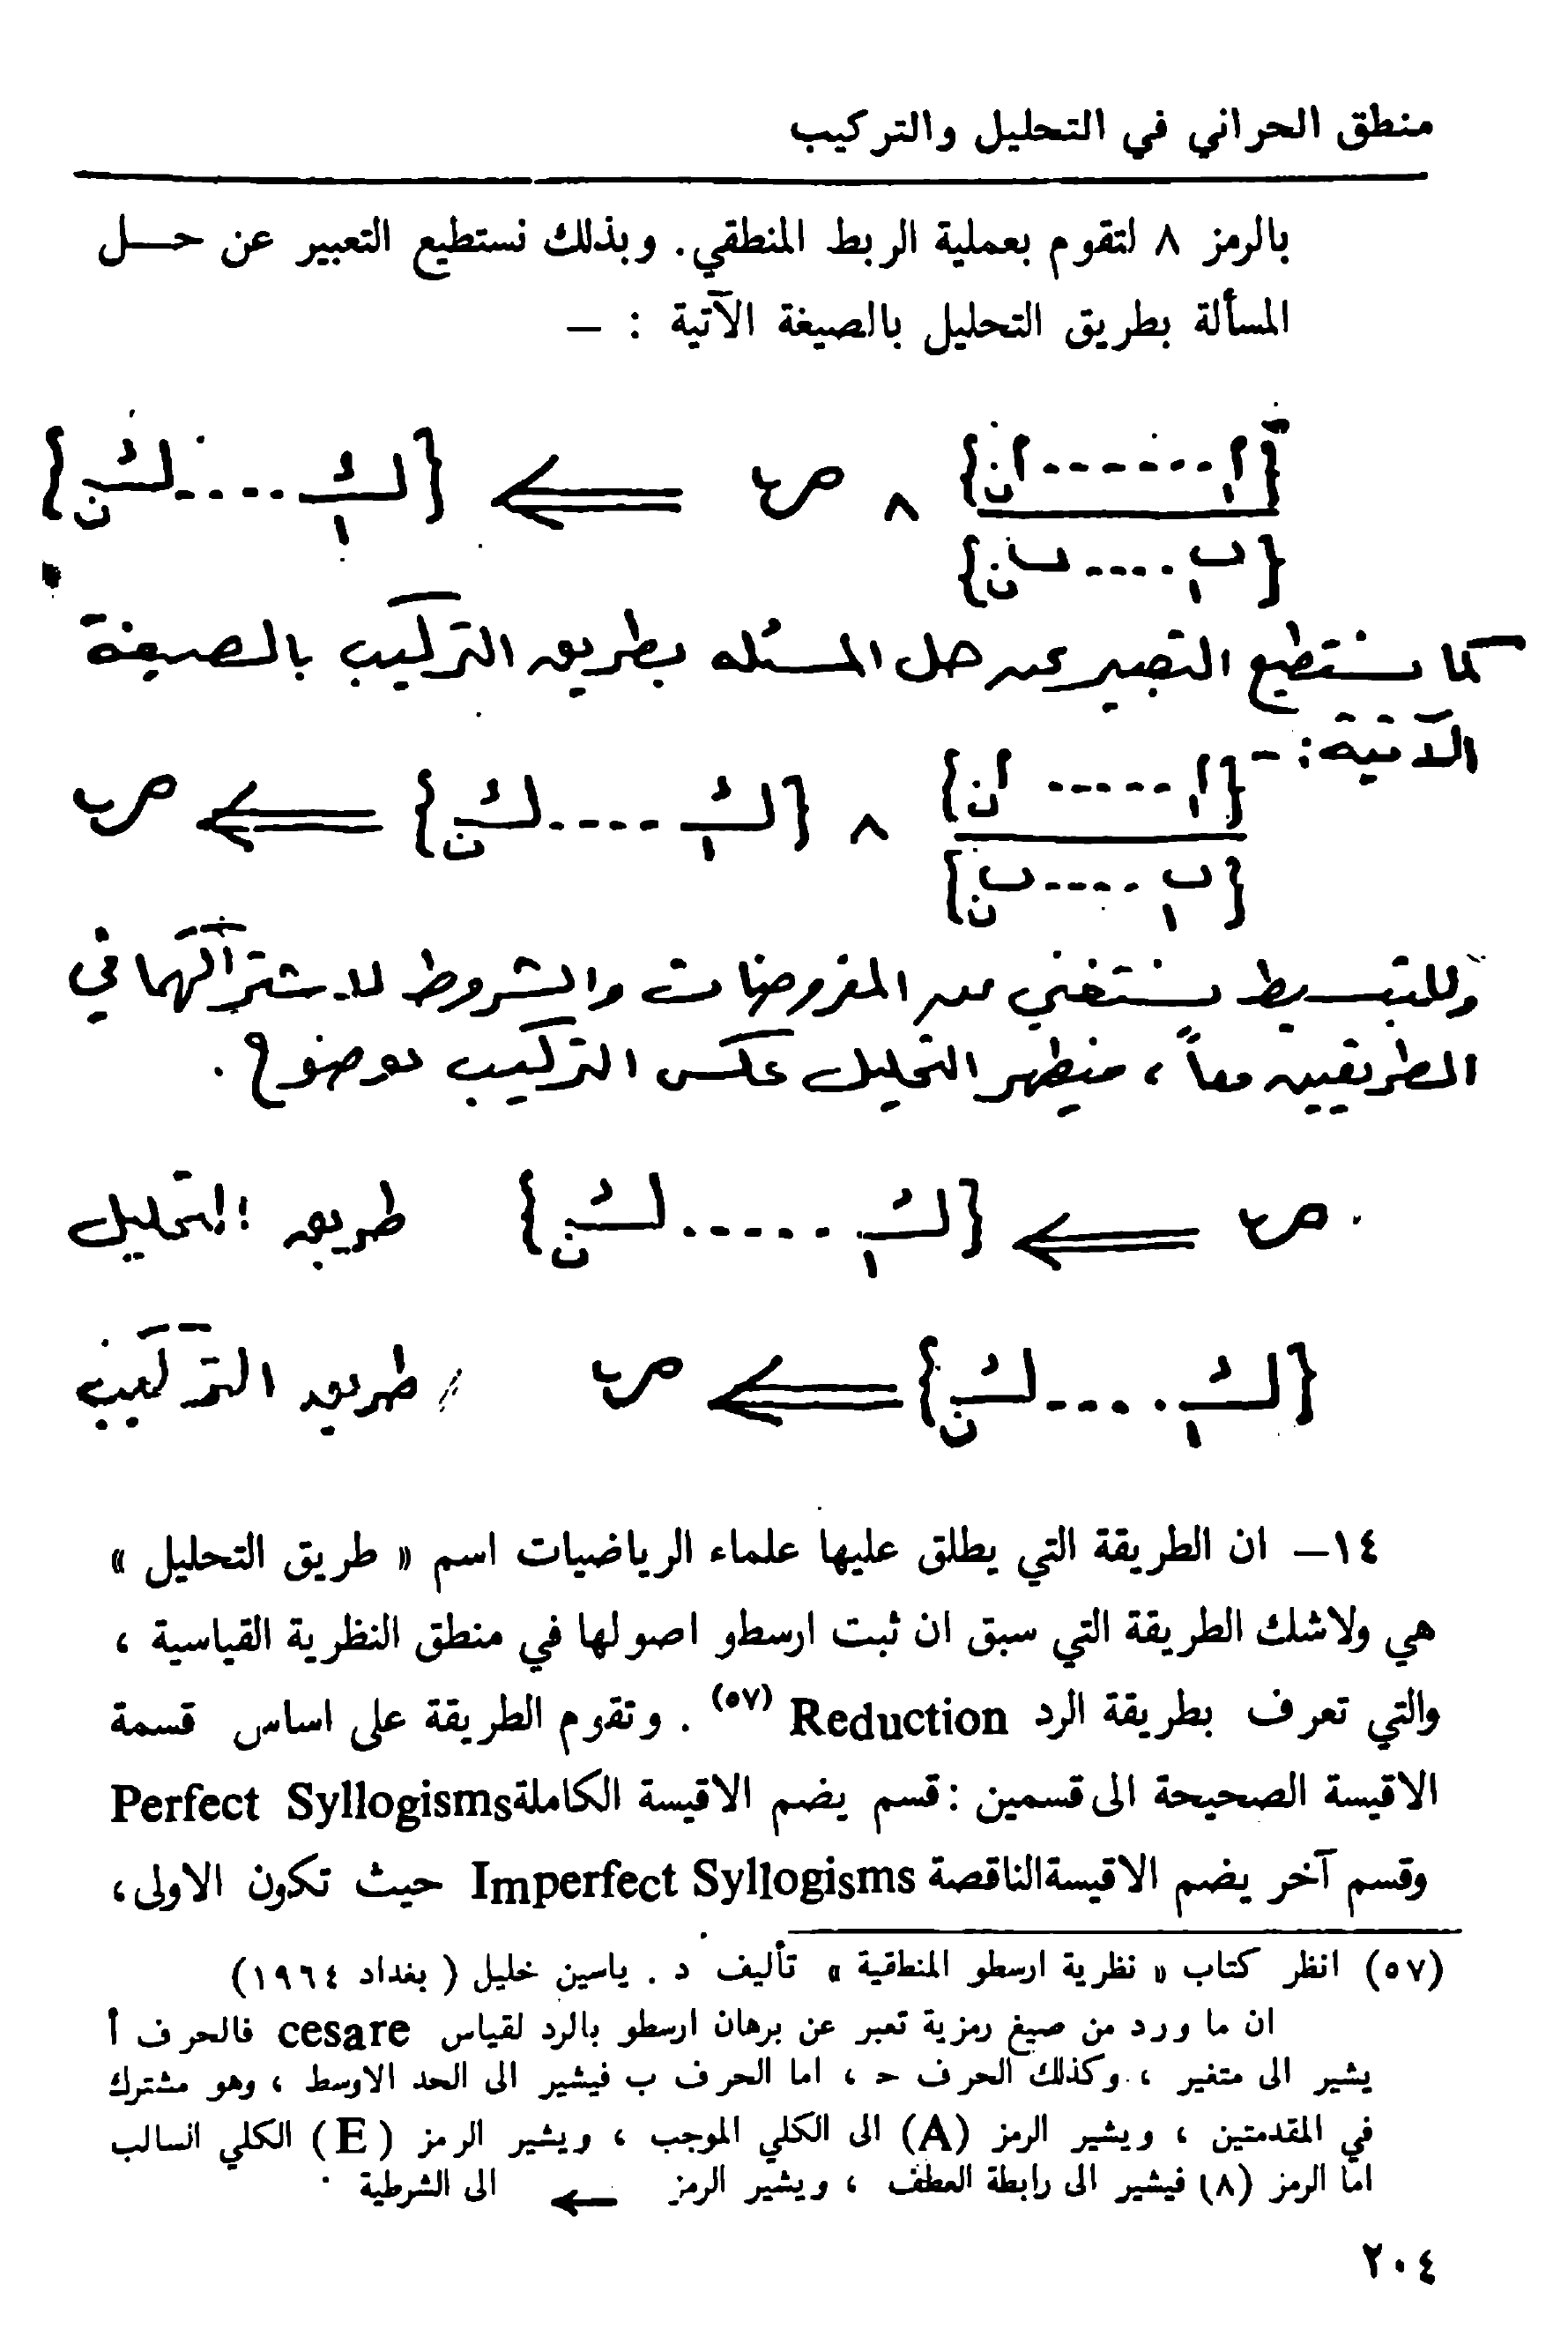 منطق الحراني في التحليل والتركيب
بالرمز ٨ لتقوم بعملية الربط المنطقي. وبذلك نستطيع التعبير عن حــل
المسألة بطريق التحليل بالصيغة الآتية : —
{أ١ ...... أن} ٨ ص ⟸ {ك١ .... كن}
{ب١ .... بن}
كما نستطيع التعبير عن حل المسئله بطريق التركيب بالصيغة
الآتية: -
{أ١ ..... أن} ٨ {ك١ .... كن} ⟸ ص
{ب١ .... بن}
وللتبسيط نستغني عن المفروضات والشروط لاشتراكهما في
الطريقين معاً ، فيظهر التحليل عكس التركيب بوضوح .
ص ⟸ {ك١ ..... كن} طريق التحليل
{ك١ .... كن} ⟸ ص طريق التركيب
١٤— ان الطريقة التي يطلق عليها علماء الرياضيات اسم « طريق التحليل »
هي ولاشك الطريقة التي سبق ان ثبت ارسطو اصولها في منطق النظرية القياسية ،
والتي تعرف بطريقة الرد Reduction (٥٧) . وتقوم الطريقة على اساس قسمة
الاقيسة الصحيحة الى قسمين : قسم يضم الاقيسة الكاملة Perfect Syllogisms
وقسم آخر يضم الاقيسة الناقصة Imperfect Syllogisms حيث تكون الاولى ،
(٥٧) انظر كتاب « نظرية ارسطو المنطقية » تأليف د . ياسين خليل ( بغداد ١٩٦٤)
ان ما ورد من صيغ رمزية تعبر عن برهان ارسطو بالرد لقياس cesare فالحرف أ
يشير الى متغير ، وكذلك الحرف حـ ، اما الحرف ب فيشير الى الحد الاوسط ، وهو مشترك
في المقدمتين ، ويشير الرمز (A) الى الكلي الموجب ، ويشير الرمز (E) الكلي السالب
اما الرمز (٨) فيشير الى رابطة العطف ، ويشير الرمز ← الى الشرطية .
٢٠٤